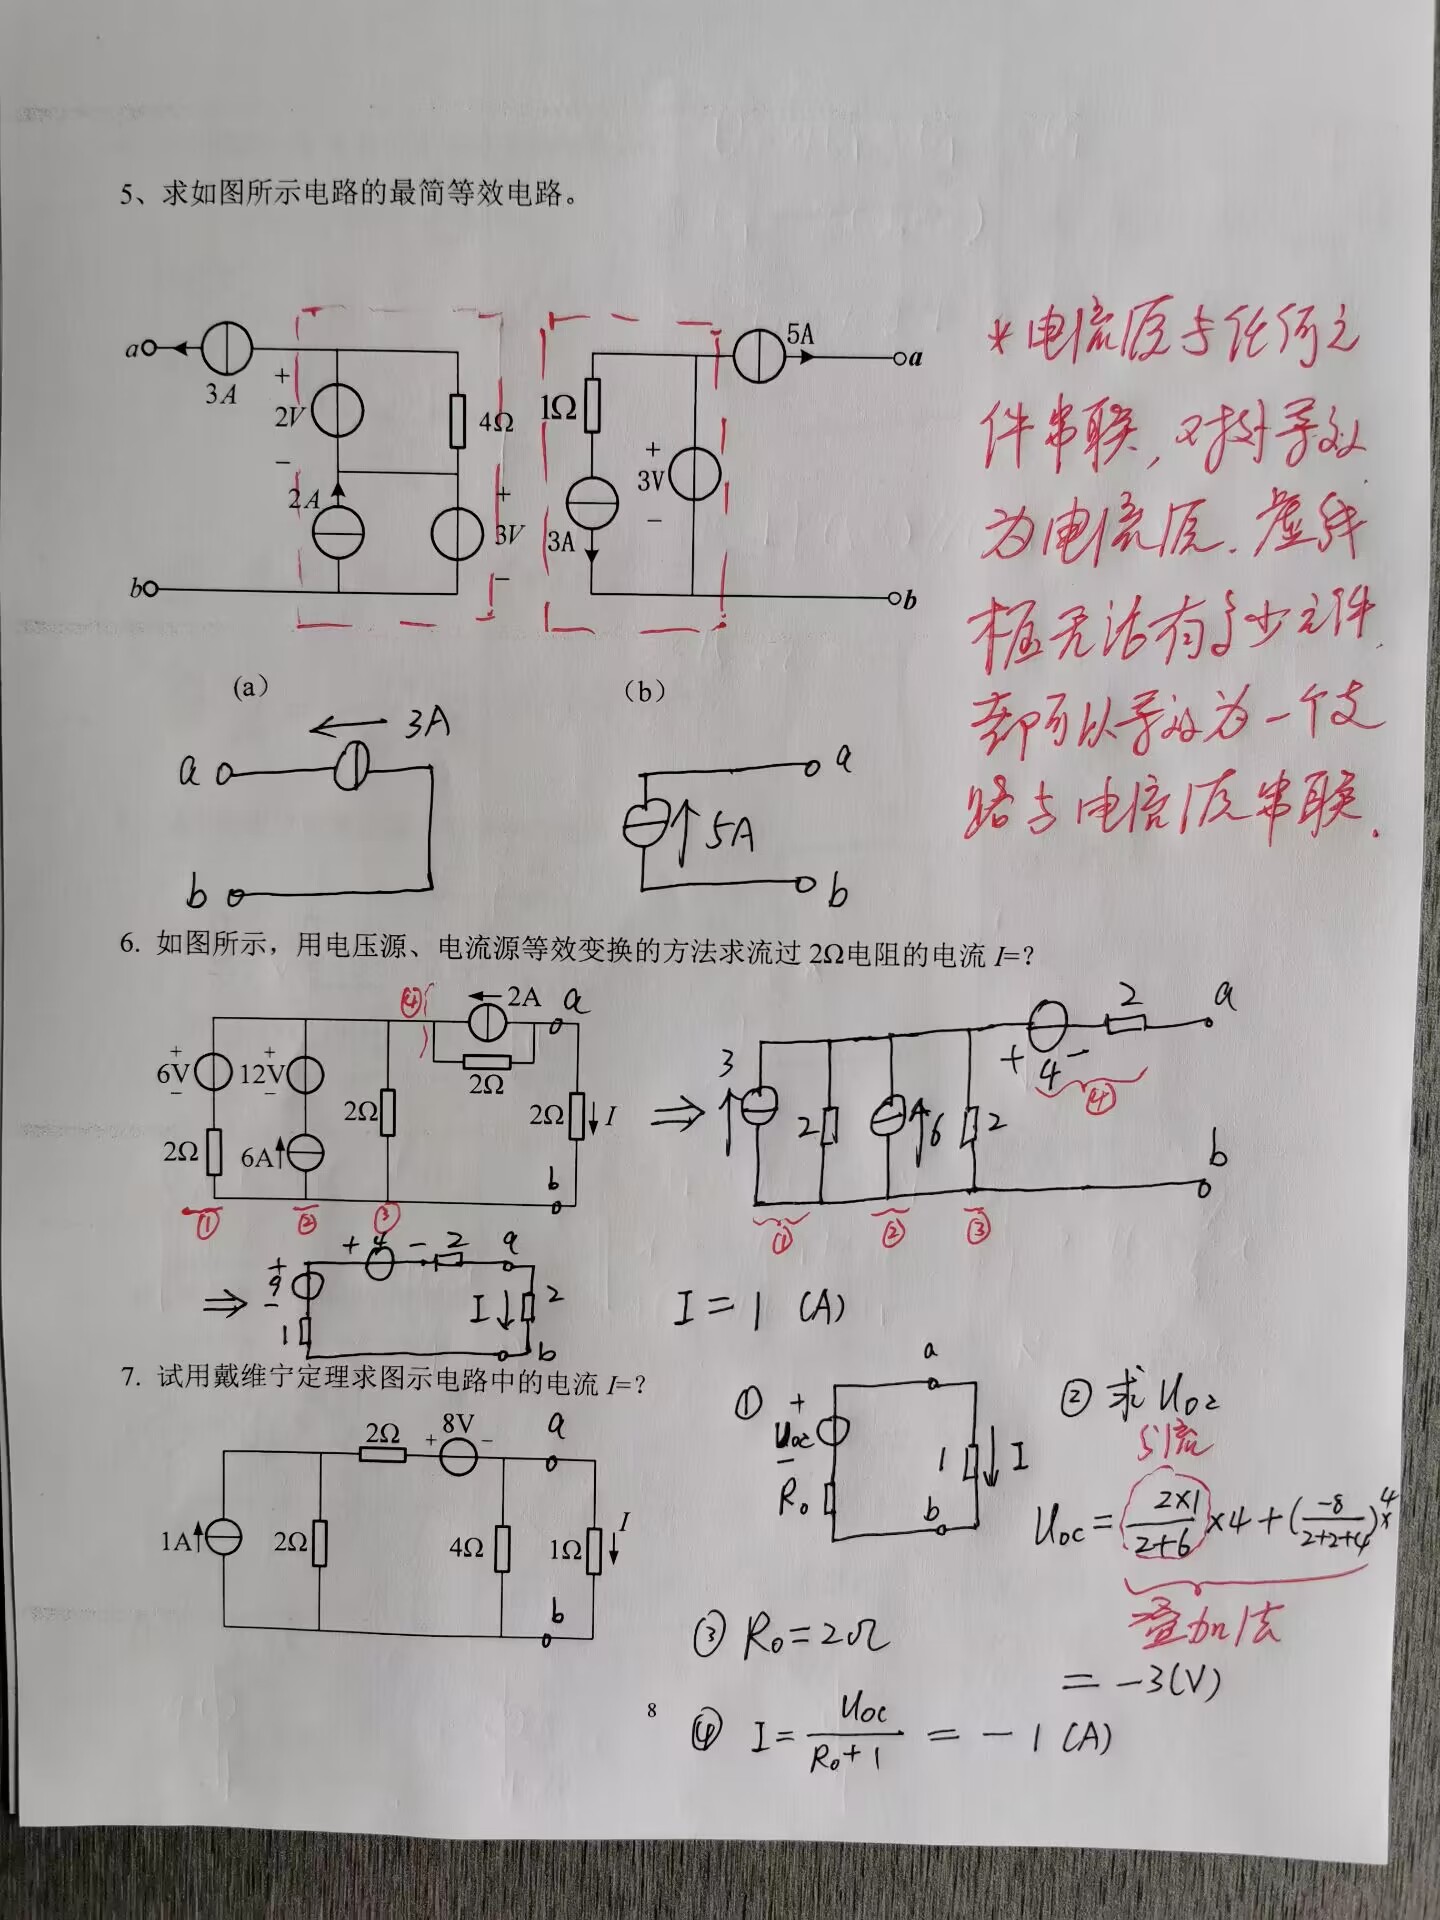 5、求如图所示电路的最简等效电路。
a 3A + 2V − 4Ω 2A + 3V − b
1Ω 3A + 3V − 5A a b
(a) (b)
*电流源与任何元
件串联,对外等效
为电流源.虚线
框无论有多少元件
都可以等效为一个支
路与电流源串联.
a 3A b
a 5A b
6. 如图所示，用电压源、电流源等效变换的方法求流过 2Ω电阻的电流 I=?
④ 2A a
+ 6V − + 12V − 2Ω 2Ω 2Ω I
2Ω 6A b
① ② ③
⇒ 3 2 6 2 + 4 − 2 a
④ b
① ② ③
⇒ + 9 − 1 + 4 − 2 a I 2 b
I = 1 (A)
7. 试用戴维宁定理求图示电路中的电流 I=?
2Ω + 8V − a
1A 2Ω 4Ω 1Ω I
b
① + Uoc − R₀ a 1 I b
② 求 Uoc
分流
Uoc = 2×1/2+6 ×4 + (−8/2+2+4)×4
叠加法
= −3(V)
③ R₀ = 2Ω
④ I = Uoc/R₀+1 = −1 (A)
8